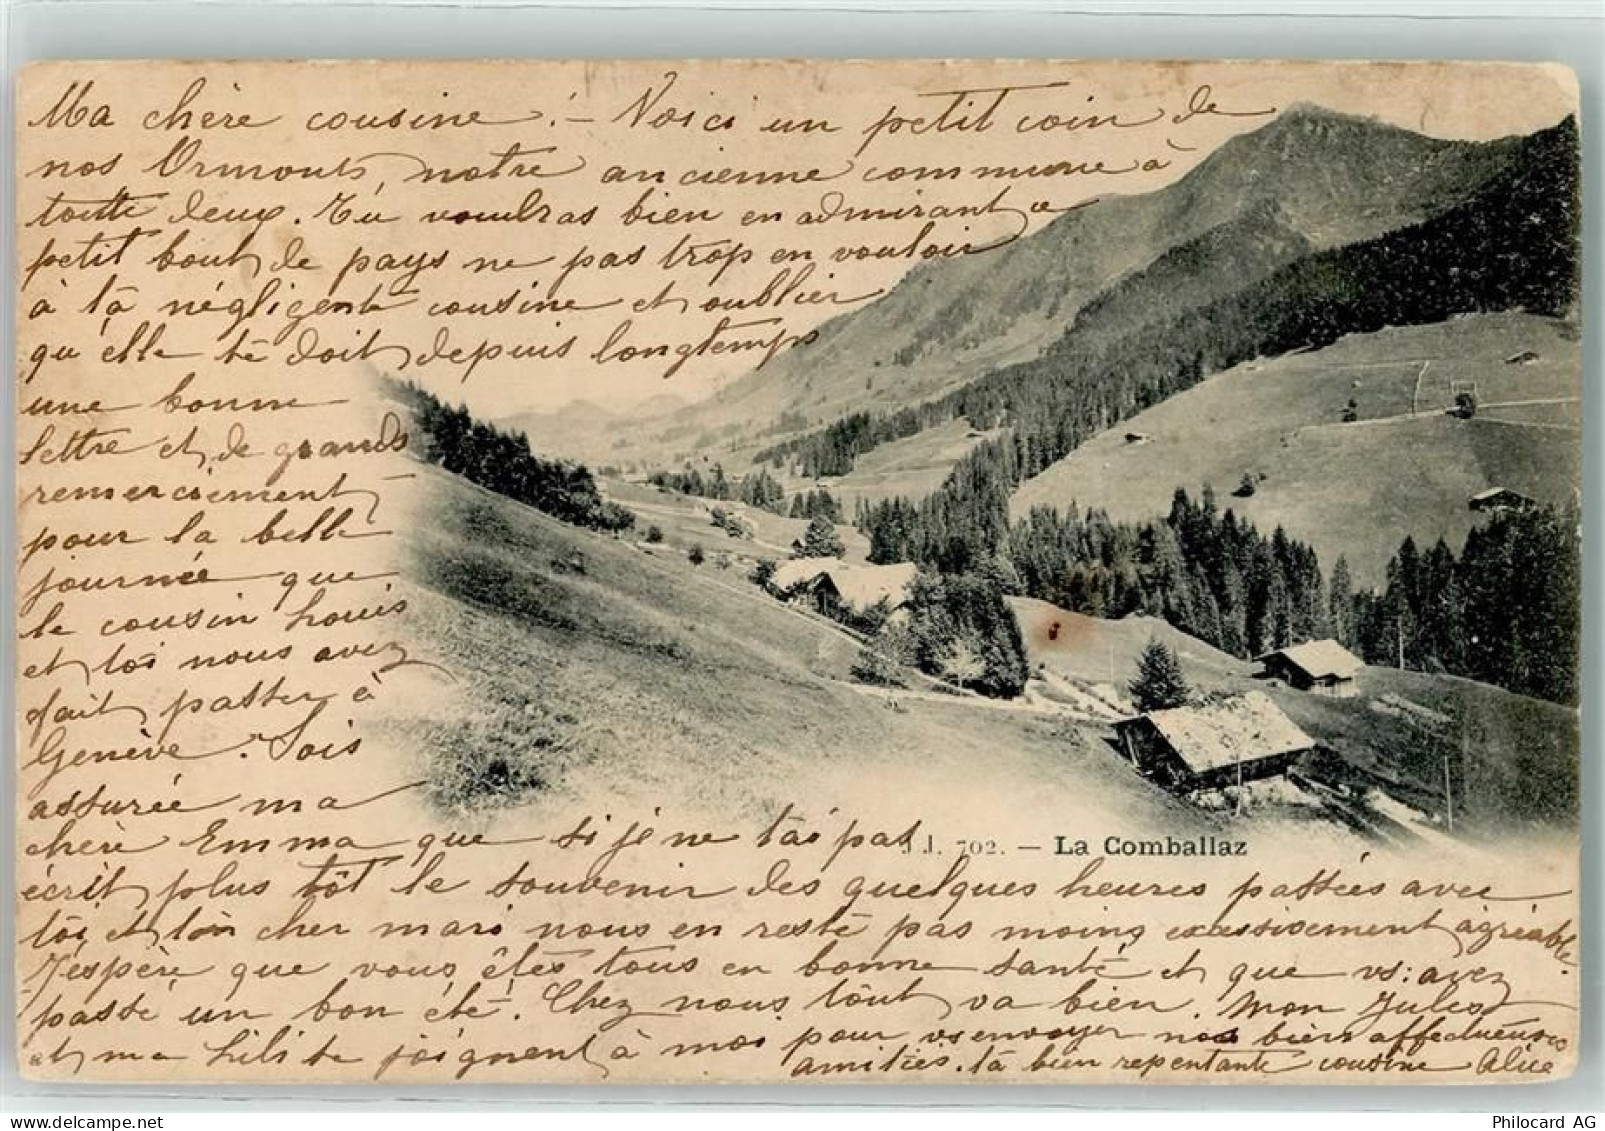 Ma chère cousine ! – Voici un petit coin de
nos Ormonts, notre ancienne commune à
toutte deux. Tu voudras bien en admirant ce
petit bout de pays ne pas trop en vouloir
à ta négligente cousine et oublier
qu'elle te doit depuis longtemps
une bonne
lettre et de grands
remerciement
pour la belle
journée que
le cousin Louis
et toi nous avez
fait passer à
Genève. Sois
assurée ma
chère Emma que si je ne t'ai pas
écrit plus tôt le souvenir des quelques heures passées avec
toi et ton cher mari nous en reste pas moins excessivement agréable.
J'espère que vous êtes tous en bonne santé et que vs: avez
passé un bon été. Chez nous tout va bien. Mon Jules
et ma Lili se joignent à moi pour vs envoyer nos bien affectueuses
amitiés. ta bien repentante cousine Alice
J.J. 702. – La Comballaz
Philocard AG